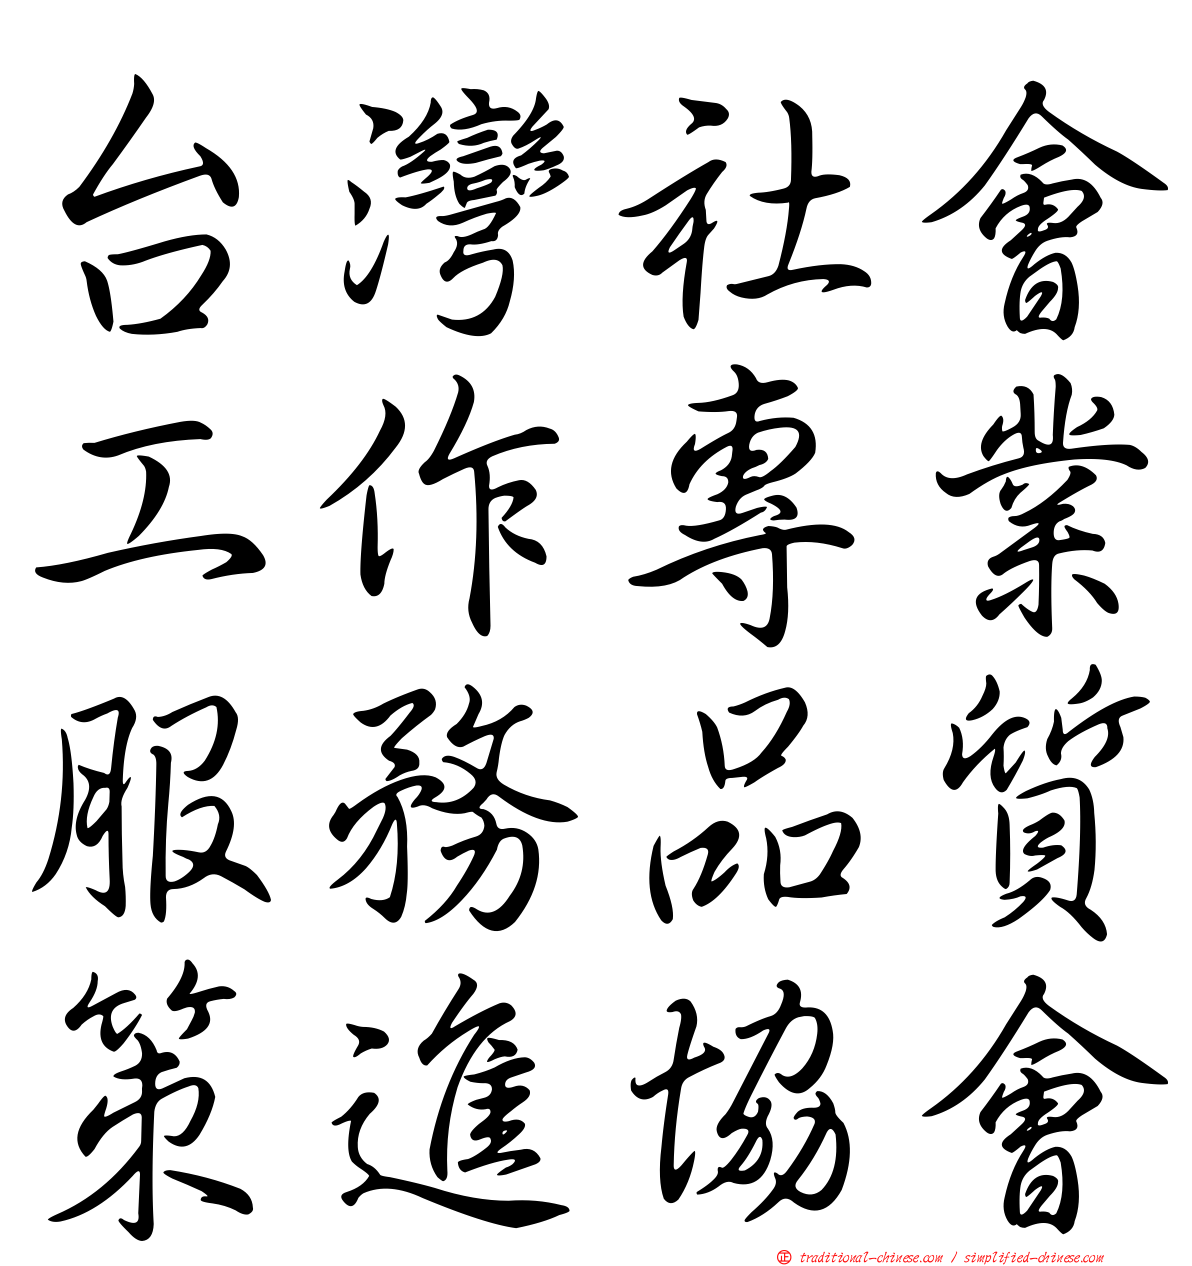 台灣社會
工作專業
服務品質
策進協會
正 traditional-chinese.com / simplified-chinese.com